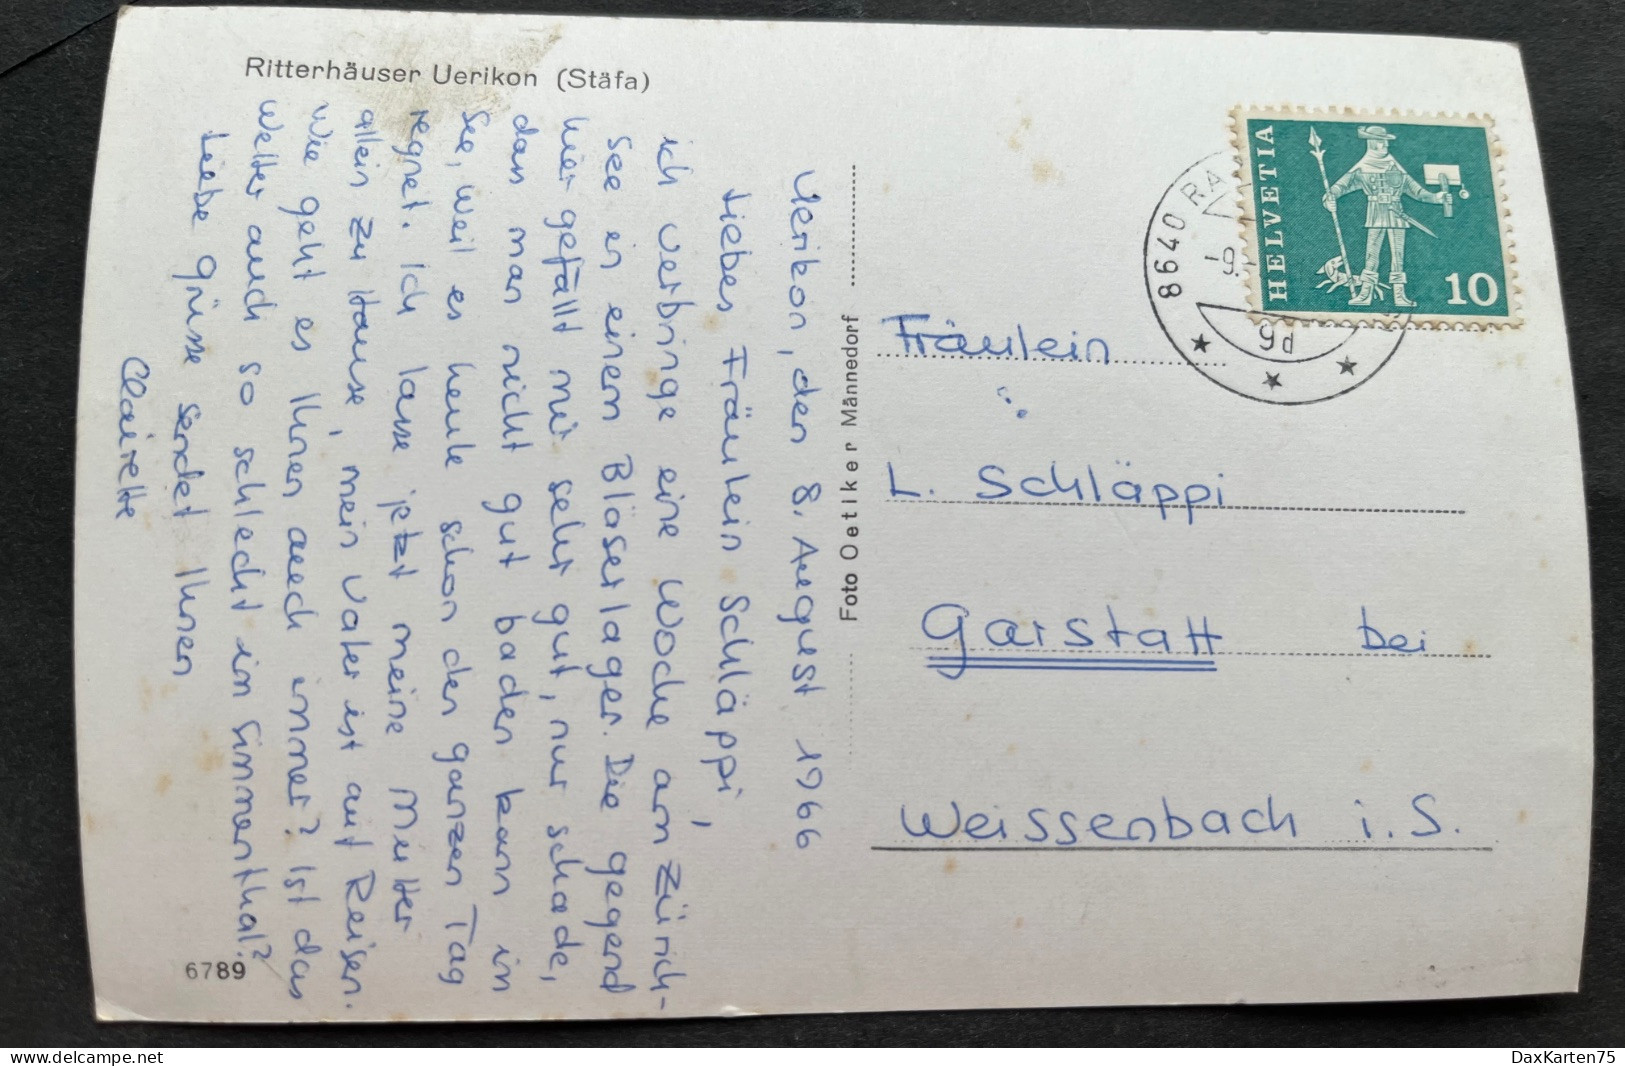 Ritterhäuser Uerikon (Stäfa)
Uerikon, den 8. August 1966
Liebes Fräulein Schläppi,
ich verbringe eine Woche am Zürich-
See in einem Bläserlager. Die gegend
hier gefällt mir sehr gut, nur schade,
dass man nicht gut baden kann im
See, weil es heute schon den ganzen Tag
regnet. Ich lasse jetzt meine Mutter
allein zu Hause, mein Vater ist auf Reisen.
Wie geht es Ihnen auch immer? Ist das
Wetter auch so schlecht im Simmenthal?
Liebe Grüsse sendet Ihnen
Clairette
6789
Foto Oetiker Männedorf
HELVETIA
10
8640 RA
-9.
9d
Fräulein
L. Schläppi
Garstatt bei
Weissenbach i. S.
www.delcampe.net
DaxKarten75